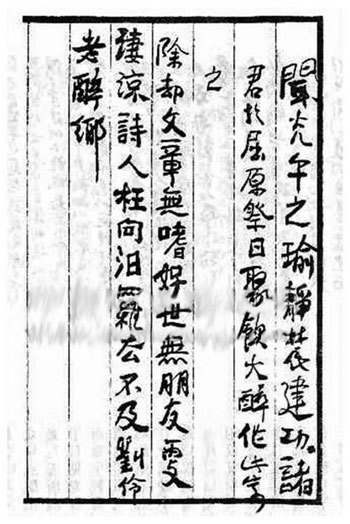 聞光午之瑜靜農建功諸
君於屈原祭日聚飲大醉作此寄
之
除却文章無嗜好世無朋友更
淒涼詩人枉向汨羅去不及劉伶
老醉鄉